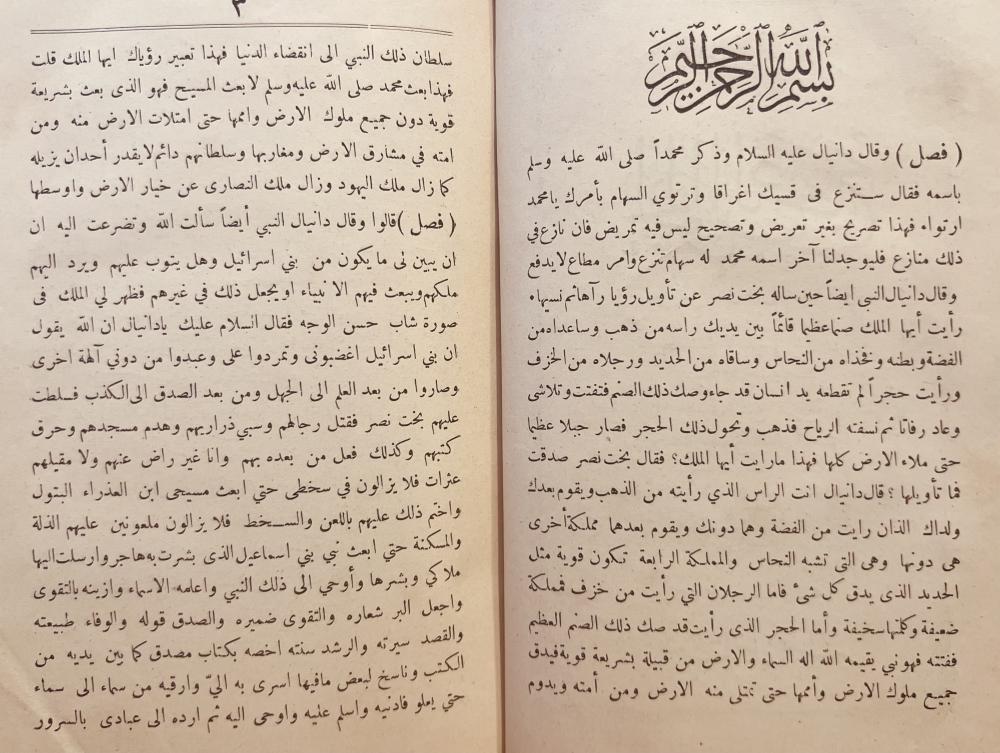 بسم الله الرحمن الرحيم
( فصل ) وقال دانيال عليه السلام وذكر محمداً صلى الله عليه وسلم
باسمه فقال ستنزع فى قسيك اغراقا وترتوي السهام بأمرك يامحمد
ارتواء فهذا تصريح بغير تعريض وتصحيح ليس فيه تمريض فان نازع في
ذلك منازع فليوجدلنا آخر اسمه محمد له سهام تنزع وامر مطاع لايدفع
وقال دانيال النبى ايضاً حين ساله بخت نصر عن تأويل رؤيا رآها ثم نسيها
رأيت أيها الملك صنما عظيما قائماً بين يديك راسه من ذهب وساعداه من
الفضة وبطنه وفخذاه من النحاس وساقاه من الحديد ورجلاه من الخزف
ورأيت حجراً لم تقطعه يد انسان قد جاء وصك ذلك الصنم فتفتت وتلاشى
وعاد رفاتا ثم نسفته الرياح فذهب وتحول ذلك الحجر فصار جبلا عظيما
حتى ملاء الارض كلها فهذا مارايت أيها الملك؟ فقال بخت نصر صدقت
فما تأويلها ؟ قال دانيال انت الراس الذي رأيته من الذهب ويقوم بعدك
ولداك الذان رايت من الفضة وهما دونك ويقوم بعدهما مملكة أخرى
هى دونها وهى التى تشبه النحاس والمملكة الرابعة تكون قوية مثل
الحديد الذى يدق كل شئ فاما الرجلان التي رأيت من خزف فمملكة
ضعيفة وكلمتها سخيفة وأما الحجر الذى رأيت قد صك ذلك الصنم العظيم
ففتته فهو نبي يقيمه الله اله السماء والارض من قبيلة بشريعة قوية فيدق
جميع ملوك الارض وأممها حتى تمتلى منه الارض ومن أمته ويدوم
٣
سلطان ذلك النبي الى انقضاء الدنيا فهذا تعبير رؤياك ايها الملك قلت
فهذا بعث محمد صلى الله عليه وسلم لا بعث المسيح فهو الذى بعث بشريعة
قوية دون جميع ملوك الارض واممها حتى امتلات الارض منه ومن
امته في مشارق الارض ومغاربها وسلطانهم دائم لايقدر أحدان يزيله
كما زال ملك اليهود وزال ملك النصارى عن خيار الارض واوسطها
( فصل ) قالوا وقال دانيال النبي أيضاً سألت الله وتضرعت اليه ان
ان يبين لى ما يكون من بني اسرائيل وهل يتوب عليهم ويرد اليهم
ملكهم ويبعث فيهم الانبياء او يجعل ذلك في غيرهم فظهر لي الملك فى
صورة شاب حسن الوجه فقال السلام عليك يادانيال ان الله يقول
ان بني اسرائيل اغضبونى وتمردوا على وعبدوا من دوني آلهة اخرى
وصاروا من بعد العلم الى الجهل ومن بعد الصدق الى الكذب فسلطت
عليهم بخت نصر فقتل رجالهم وسبي ذراريهم وهدم مسجدهم وحرق
كتبهم وكذلك فعل من بعده بهم وانا غير راض عنهم ولا مقيلهم
عثرات فلا يزالون في سخطى حتي ابعث مسيحى ابن العذراء البتول
واختم ذلك عليهم باللعن والسخط فلا يزالون ملعونين عليهم الذلة
والمسكنة حتي ابعث نبي بني اسماعيل الذى بشرت به هاجر وارسلت اليها
ملاكي وبشرها وأوحي الى ذلك النبي واعلمه الاسماء وازينه بالتقوى
واجعل البر شعاره والتقوى ضميره والصدق قوله والوفاء طبيعته
والقصد سيرته والرشد سنته اخصه بكتاب مصدق كما بين يديه من
الكتب وناسخ لبعض مافيها اسرى به اليّ وارقيه من سماء الى سماء
حتي يعلو فادنيه واسلم عليه واوحى اليه ثم ارده الى عبادى بالسرور